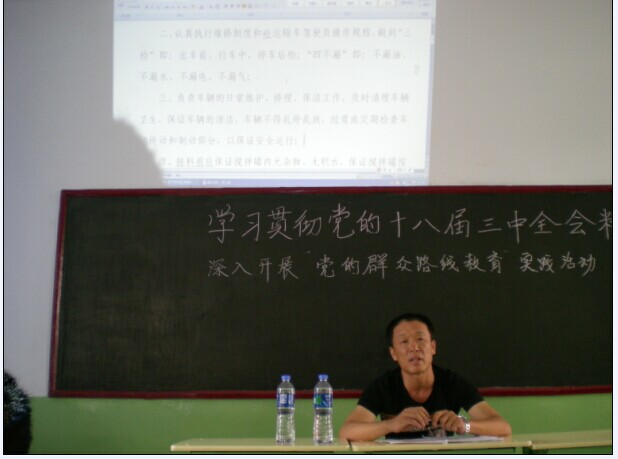 二、认真执行维修制度和运输车驾驶员操作规程，做到“三
检”即：出车前、行车中、停车后检；“四不漏”即：不漏油、
不漏水、不漏电、不漏气；
三、负责车辆的日常维护、修理、保洁工作，及时清理车辆
卫生，保证车辆的清洁，车辆不得乱停乱放，经常或定期检查车
传动和制动部分，以保证安全运行；
装料前应保证搅拌罐内无杂物、无积水，保证搅拌罐按
学习贯彻党的十八届三中全会精
深入开展“党的群众路线教育”实践活动